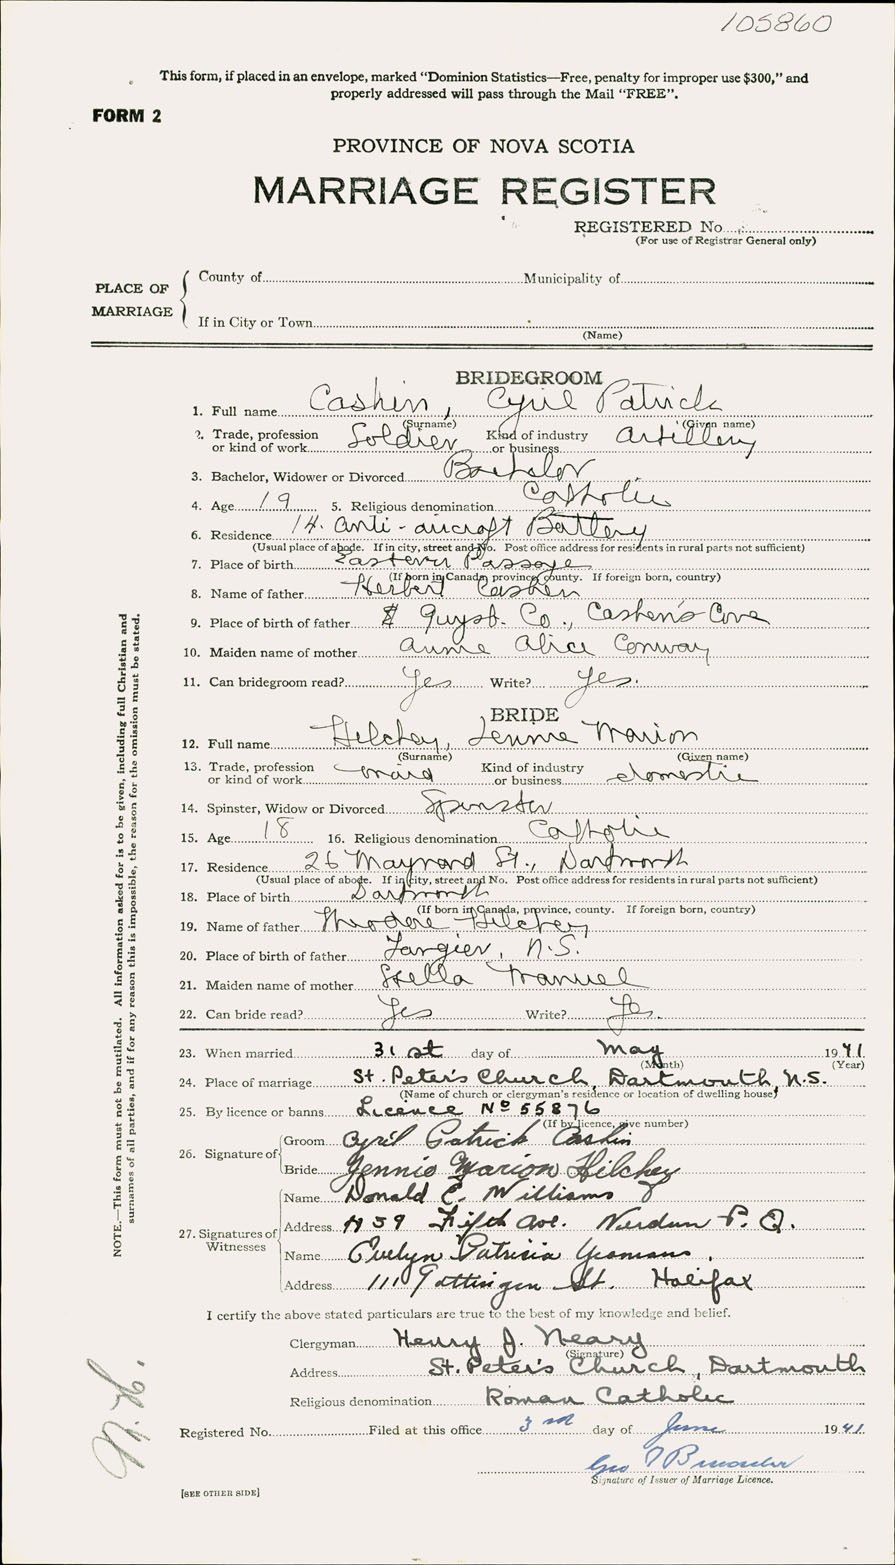 105860
This form, if placed in an envelope, marked “Dominion Statistics—Free, penalty for improper use $300,” and
properly addressed will pass through the Mail “FREE”.
FORM 2
PROVINCE OF NOVA SCOTIA
MARRIAGE REGISTER
REGISTERED No.
(For use of Registrar General only)
PLACE OF MARRIAGE
County of Municipality of
If in City or Town
(Name)
BRIDEGROOM
1. Full name Cashin, Cyril Patrick
(Surname) (Given name)
2. Trade, profession or kind of work Soldier Kind of industry or business Artillery
3. Bachelor, Widower or Divorced Bachelor
4. Age 19 5. Religious denomination Catholic
6. Residence 14. Anti-aircraft Battery
(Usual place of abode. If in city, street and No. Post office address for residents in rural parts not sufficient)
7. Place of birth Eastern Passage
(If born in Canada, province, county. If foreign born, country)
8. Name of father Herbert Cashen
9. Place of birth of father Guysb. Co., Cashen's Cove
10. Maiden name of mother Annie Alice Conway
11. Can bridegroom read? Yes Write? Yes.
BRIDE
12. Full name Hilchey, Jennie Marion
(Surname) (Given name)
13. Trade, profession or kind of work maid Kind of industry or business domestic
14. Spinster, Widow or Divorced Spinster
15. Age 18 16. Religious denomination Catholic
17. Residence 26 Maynard St., Dartmouth
(Usual place of abode. If in city, street and No. Post office address for residents in rural parts not sufficient)
18. Place of birth Dartmouth
(If born in Canada, province, county. If foreign born, country)
19. Name of father Theodore Hilchey
20. Place of birth of father Tangier, N.S.
21. Maiden name of mother Stella Manuel
22. Can bride read? Yes Write? Yes.
23. When married 31st day of May 1941
(Month) (Year)
24. Place of marriage St. Peter's Church, Dartmouth, N.S.
(Name of church or clergyman's residence or location of dwelling house)
25. By licence or banns Licence No 55876
(If by licence, give number)
26. Signature of Groom Cyril Patrick Cashin
Bride Jennie Marion Hilchey
27. Signatures of Witnesses
Name Donald E. Williams
Address 1159 Fifth Ave. Verdun P.Q.
Name Evelyn Patrisia Yeomans,
Address 111 Gottingen St. Halifax
I certify the above stated particulars are true to the best of my knowledge and belief.
Clergyman Henry J. Neary
(Signature)
Address St. Peter's Church, Dartmouth
Religious denomination Roman Catholic
Registered No. Filed at this office 3rd day of June 1941
Geo
Signature of Issuer of Marriage Licence.
[SEE OTHER SIDE]
NOTE.—This form must not be mutilated. All information asked for is to be given, including full Christian and
surnames of all parties, and if for any reason this is impossible, the reason for the omission must be stated.